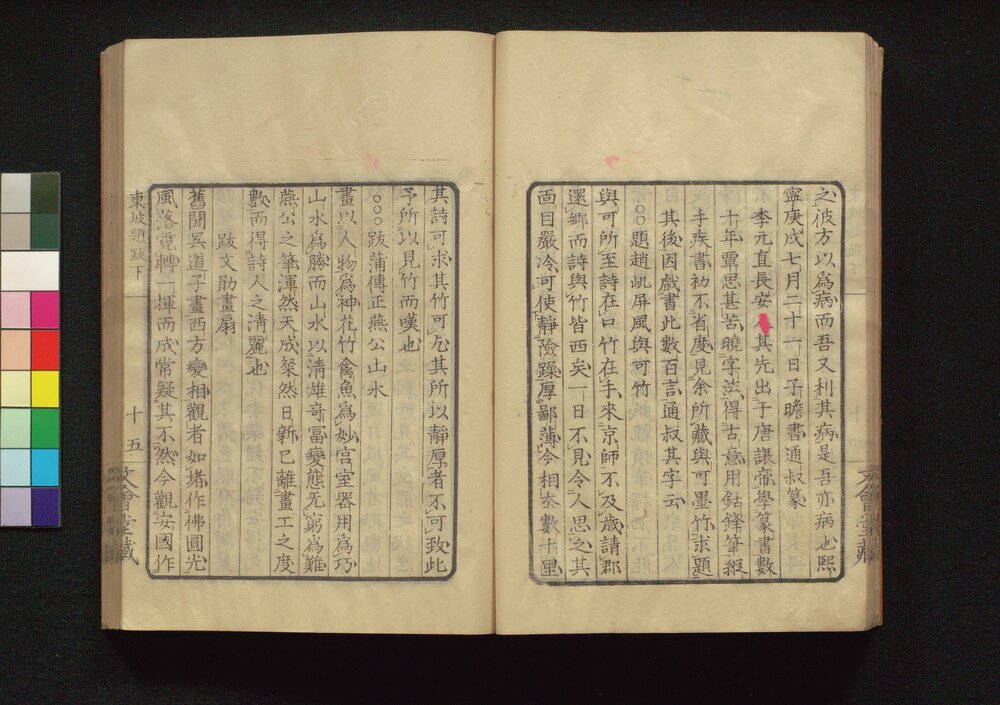 之彼方以爲病而吾又利其病是吾亦病也熙
寧庚戌七月二十一日子瞻書通叔篆
李元直長安人其先出于唐讓帝學篆書數
十年覃思甚苦曉字法得古意用鈷鋒筆縱
手疾書初不省度見余所藏與可墨竹求題
其後因戲書此數百言通叔其字云
○○題趙𡵆屏風與可竹
與可所至詩在口竹在手來京師不及歲請郡
還鄉而詩與竹皆西矣一日不見令人思之其
面目嚴冷可使靜險躁厚鄙薄今相去數千里
其詩可求其竹可乞其所以靜厚者不可致此
予所以見竹而嘆也
○○○跋蒲傳正燕公山水
畫以人物爲神花竹禽魚爲妙宮室器用爲巧
山水爲勝而山水以清雄奇富變態无窮爲難
燕公之筆渾然天成粲然日新已離畫工之度
數而得詩人之清麗也
跋文勛畫扇
舊聞吳道子畫西方變相觀者如堵作佛圓光
風落電轉一揮而成常疑其不然今觀安國作
東坡題跋下
十五
文會堂藏